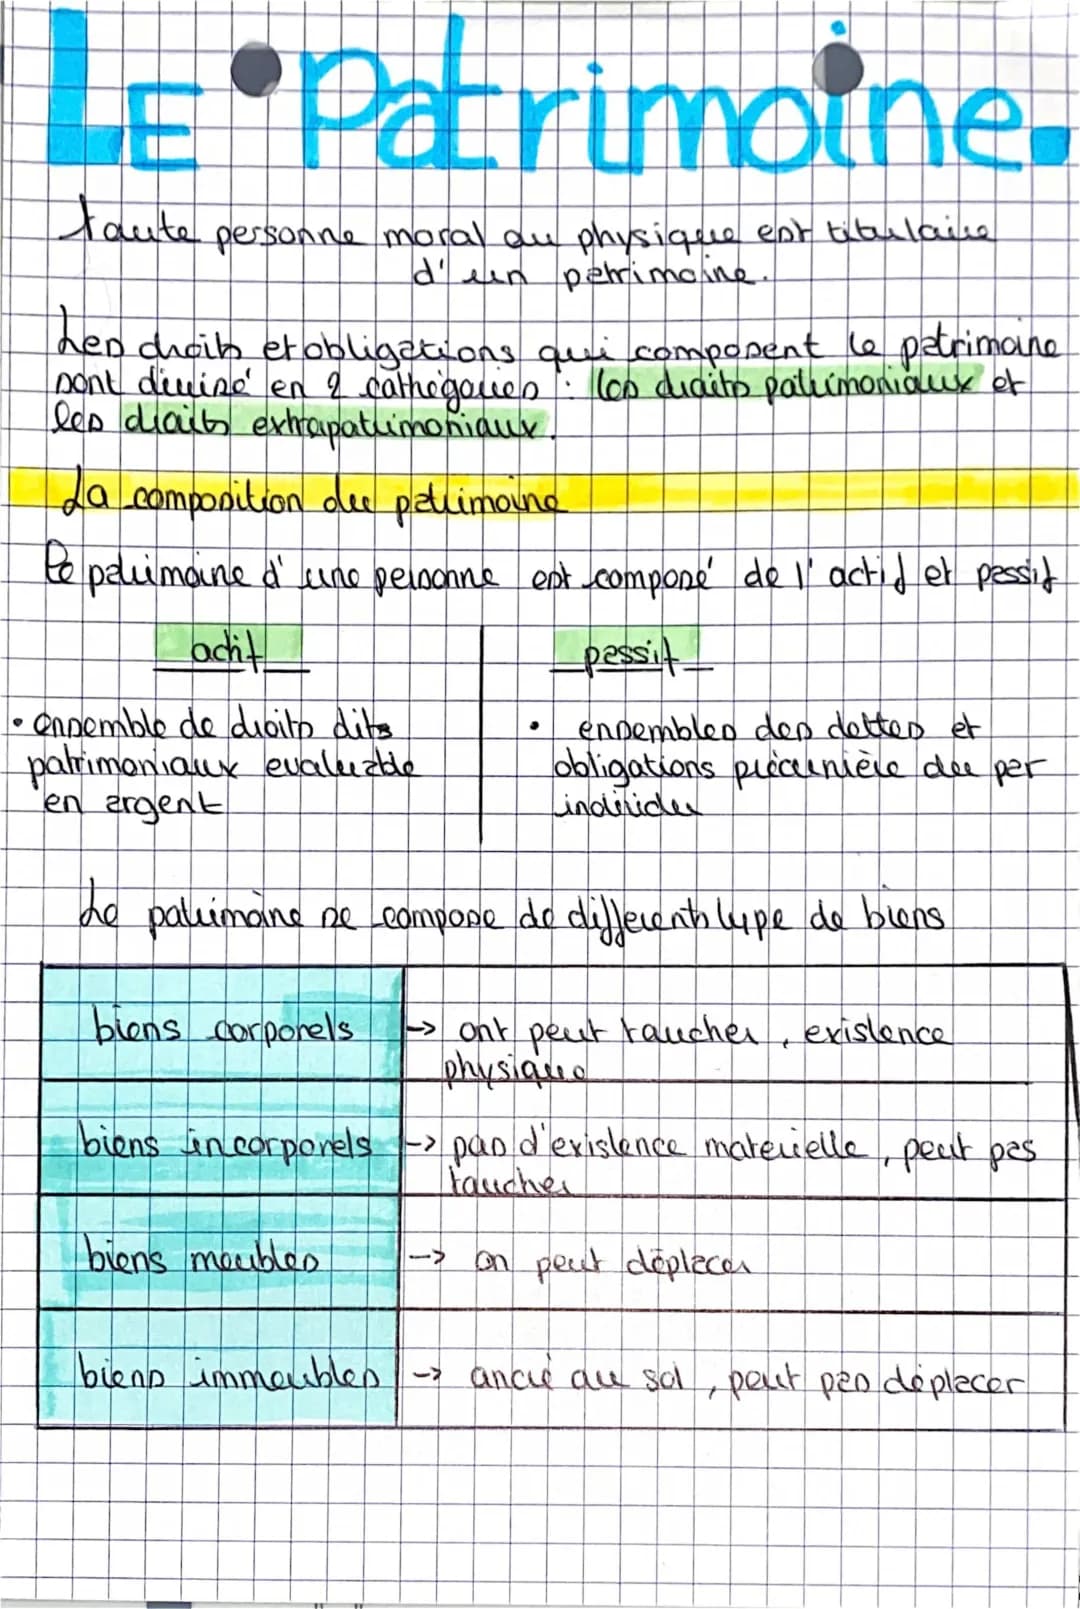 LE Patrimoine.
toute personne moral ou physique est titulaire
d'un patrimoine.
Les droits et obligations qui composent le patrimoine
sont divisé en 2 cathégories : les droits patrimoniaux et
les droits extrapatrimoniaux.
La composition du patrimoine
Le patrimoine d'une personne est composé de l'actif et passif
actif
passif
• ensemble de droits dits
patrimoniaux evaluable
en argent
• ensembles des dettes et
obligations précunière du per
individu
Le patrimoine se compose de differents type de biens
biens corporels -> ont peut toucher, existence
physique
biens incorporels -> pas d'existence materielle, peut pas
toucher
biens meubles -> on peut déplacer
biens immeubles -> ancré au sol, peut pas déplacer